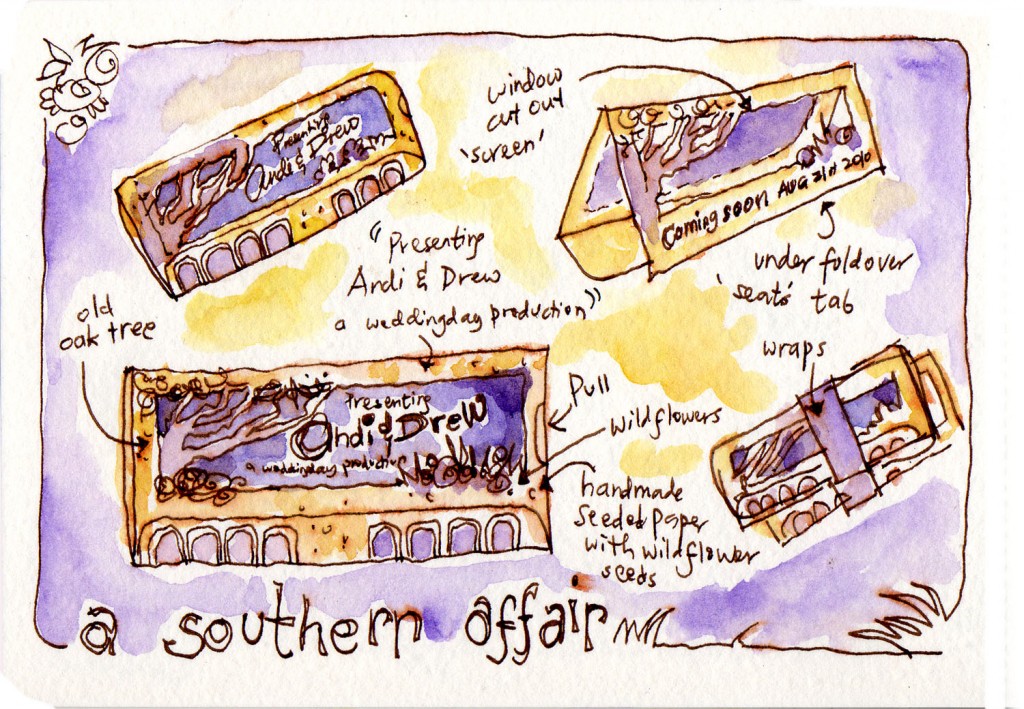 Presenting
Andi & Drew
window
cut out
'screen'
Coming soon AUG 21st 2010
"Presenting
Andi & Drew
a weddingday production"
under foldover
'seats' tab
old
oak tree
Presenting
Andi & Drew
a weddingday production
Pull
wildflowers
handmade
seeded paper
with wildflower
seeds
wraps
a southern affair